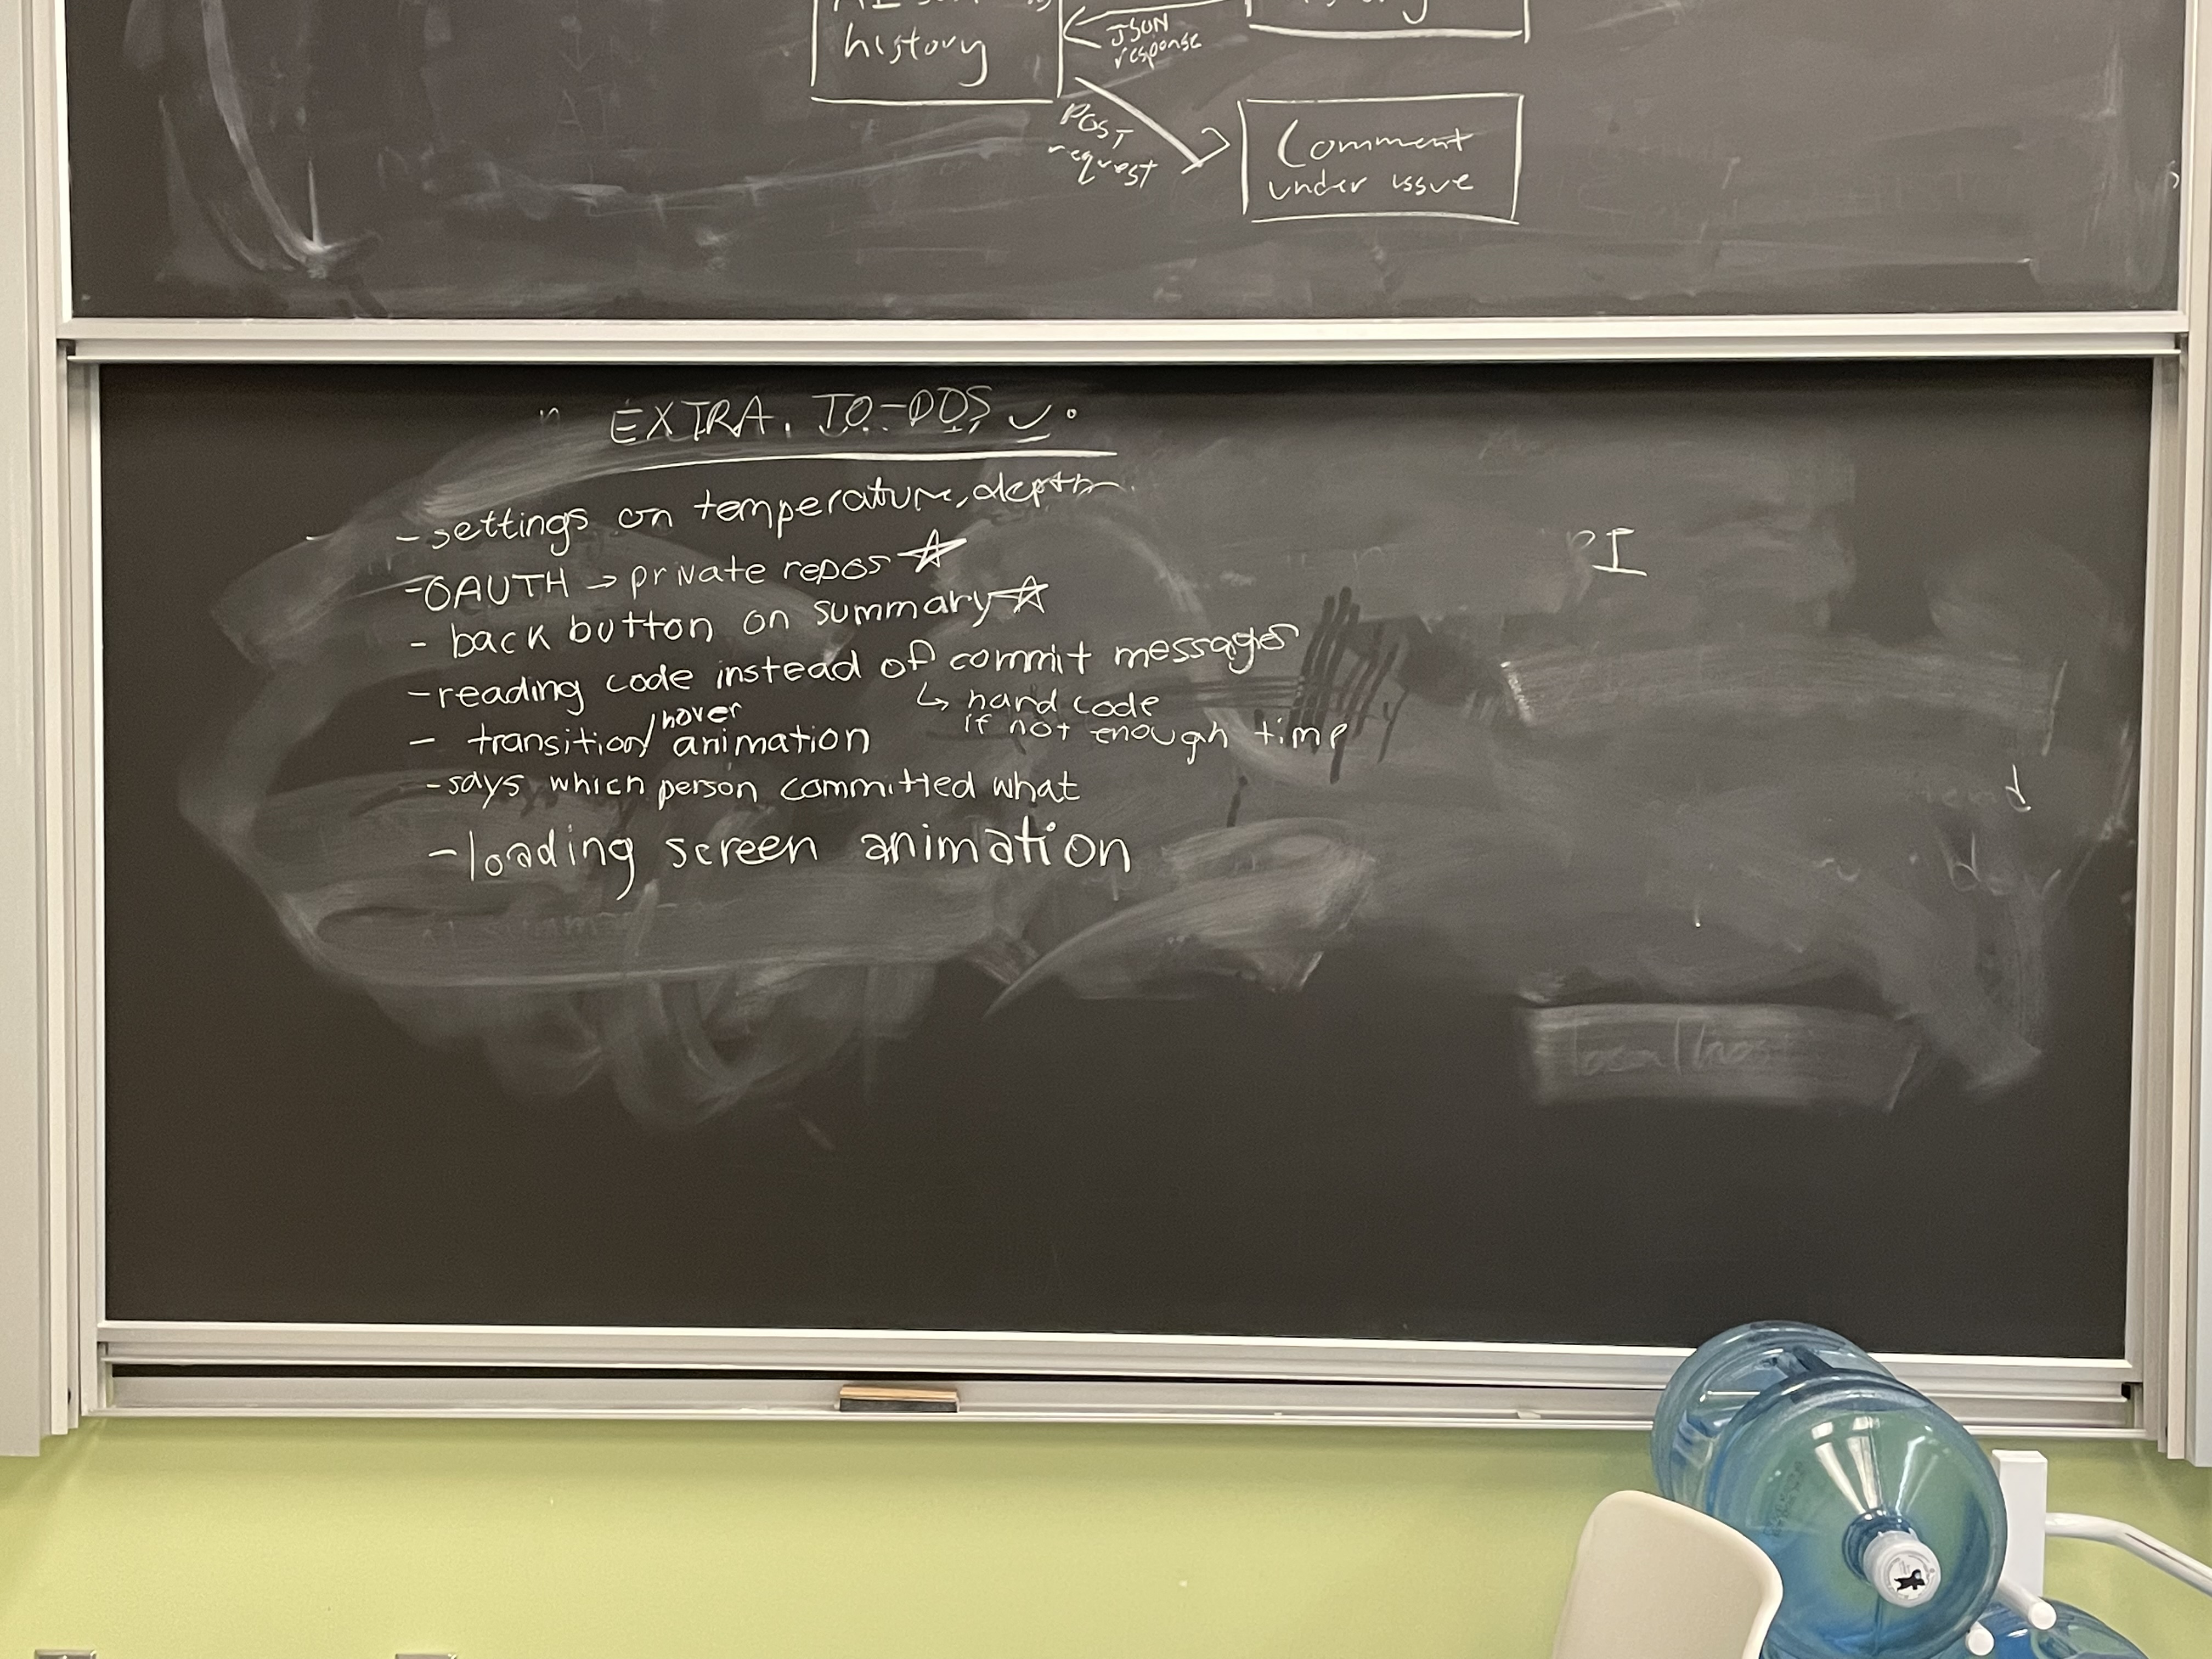 history
JSON
response
POST
request
Comment
under issue
EXTRA TO-DOS
- settings on temperature, depth
- OAUTH → private repos ☆
- back button on summary ☆
- reading code instead of commit messages
↳ hard code
if not enough time
- transition/hover animation
- says which person committed what
- loading screen animation